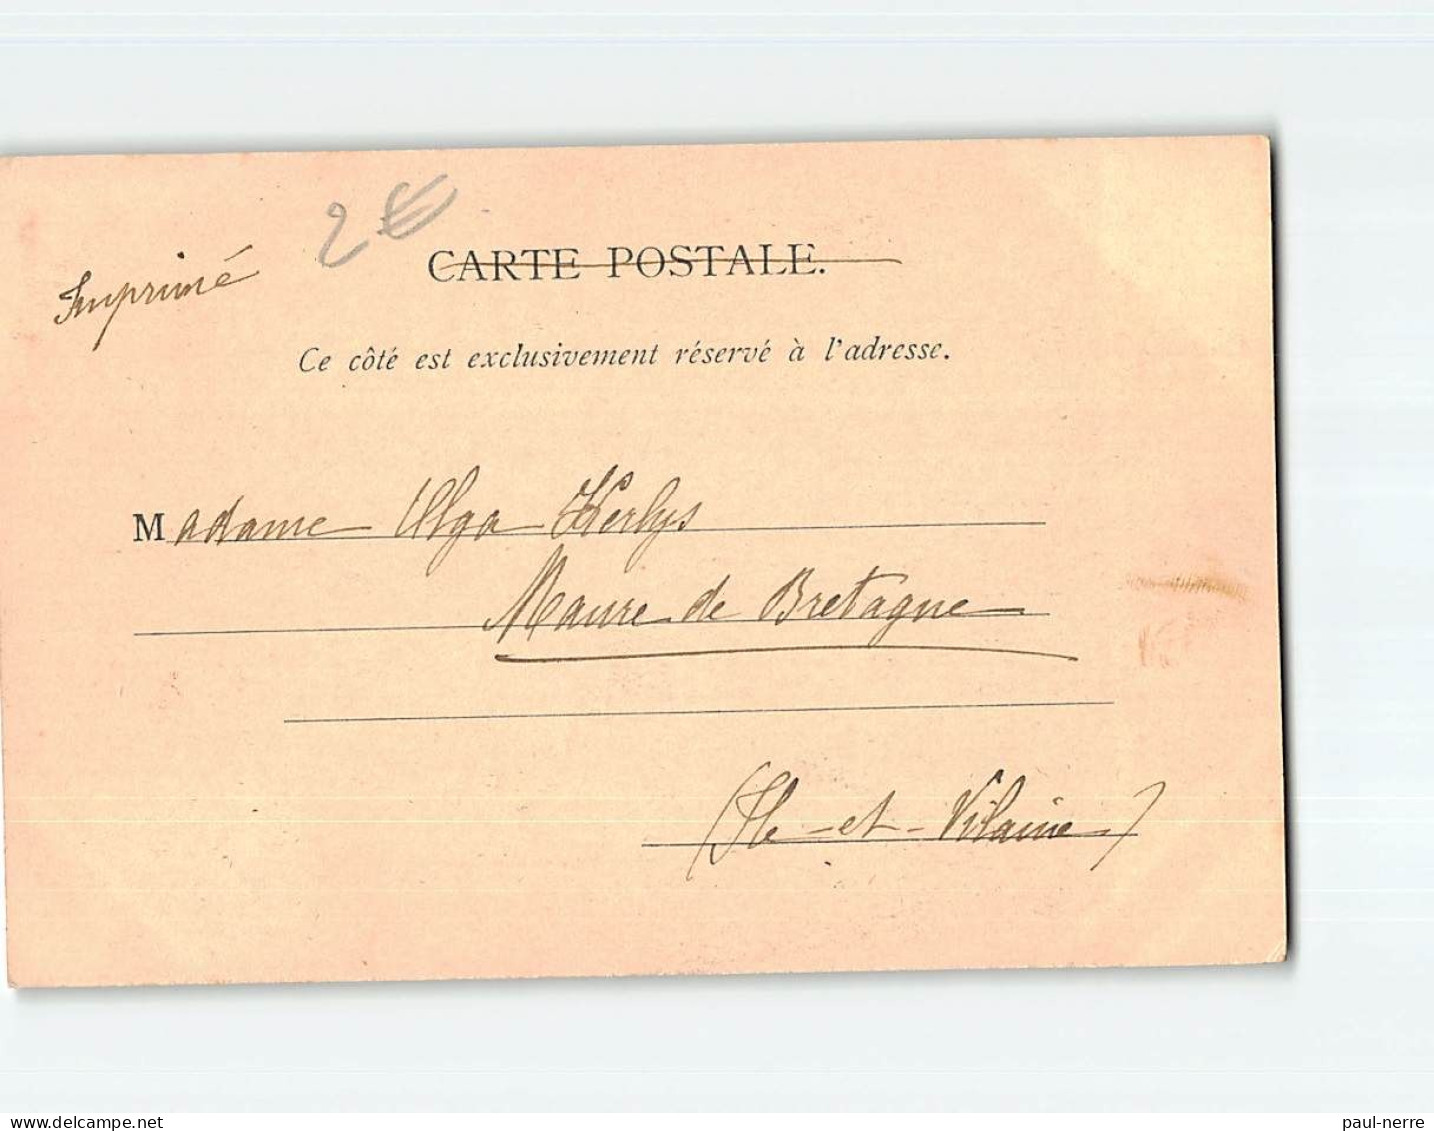 2€
Imprimé
CARTE POSTALE.
Ce côté est exclusivement réservé à l'adresse.
Madame Olga Kerlys
Maure de Bretagne
(Ile-et-Vilaine)
delcampe.net
paul-nerre